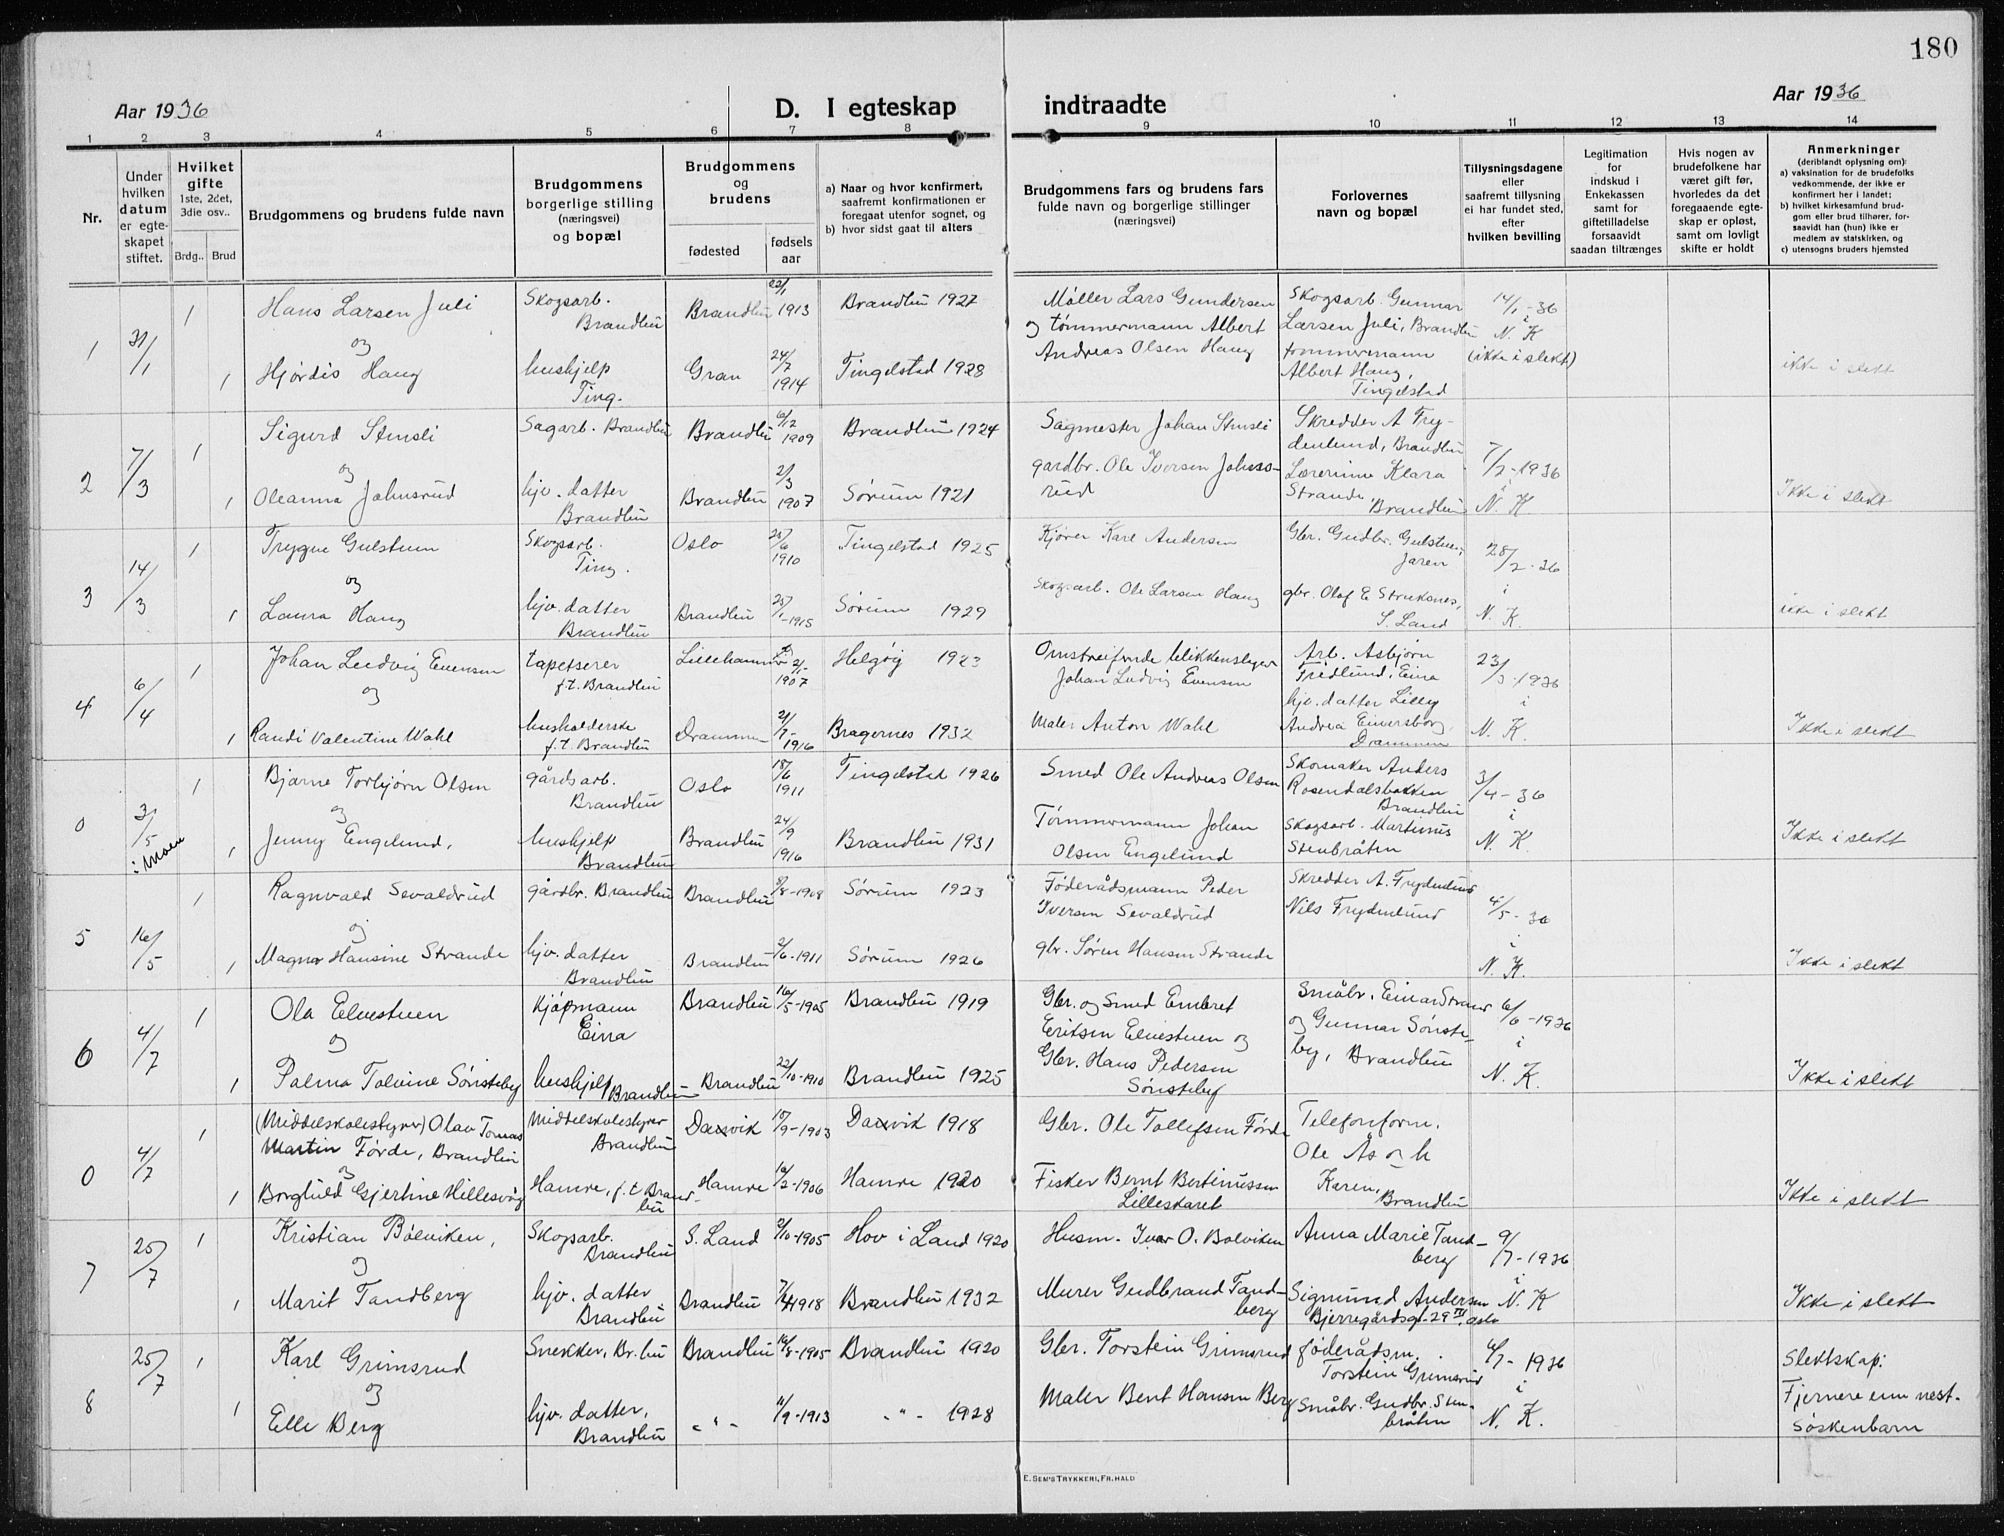 180
Aar 1936
D. I egteskap indtraadte
Aar 1936
1 2 3 4 5 6 7 8 9 10 11 12 13 14
Nr.
Under hvilken datum er egteskapet stiftet.
Hvilket gifte 1ste, 2det, 3die osv..
Brdg.. Brud
Brudgommens og brudens fulde navn
Brudgommens borgerlige stilling (næringsvei) og bopæl
Brudgommens og brudens
fødested
fødselsaar
a) Naar og hvor konfirmert, saafremt konfirmationen er foregaat utenfor sognet, og
b) hvor sidst gaat til alters
Brudgommens fars og brudens fars fulde navn og borgerlige stillinger (næringsvei)
Forlovernes navn og bopæl
Tillysningsdagene eller saafremt tillysning ei har fundet sted, efter hvilken bevilling
Legitimation for indskud i Enkekassen samt for giftetilladelse forsaavidt saadan tiltrænges
Hvis nogen av brudefolkene har været gift før, hvorledes da det foregaaende egteskap er opløst, samt om lovligt skifte er holdt
Anmerkninger
(deriblandt oplysning om):
a) vaksination for de brudefolks vedkommende, der ikke er konfirmert her i landet;
b) hvilket kirkesamfund brudgom eller brud tilhører, forsaavidt han (hun) ikke er medlem av statskirken, og
c) utensogns bruders hjemsted
1 31/1 1 Hans Larsen Juli Skogsarb. Brandbu Brandbu 22/1 1913 Brandbu 1927 Møller Lars Gundersen Skogsarb. Gunnar Larsen Juli, Brandbu 14/1-36 i N. K (ikke i slekt)
og
1 Hjørdis Haug hushjelp Ting. Gran 24/7 1914 Tingelstad 1928 og tømmermann Albert Andreas Olsen Haug tømmermann Albert Haug, Tingelstad ikke i slekt
2 7/3 1 Sigurd Stensli Sagarb. Brandbu Brandbu 6/12 1909 Brandbu 1924 Sagmester Johan Stensli Skredder A Frydenlund, Brandbu 7/2-1936 i N. K.
og
1 Oleanna Johnsrud hjv. datter Brandbu Brandbu 2/3 1907 Sørum 1921 gardbr. Ole Iversen Johnsrud Lærerinne Klara Strande, Brandbu Ikke i slekt
3 14/3 1 Trygve Gulstuen Skogsarb. Ting. Oslo 1910 Tingelstad 1925 Kjører Karl Andersen Gbr. Gudbr. Gulstuen, Jaren 28/2-36 i N. K.
og
1 Laura Haug hjv. datter Brandbu Brandbu 25/1-1915 Sørum 1929 Skogsarb. Ole Larsen Haug gbr. Olof E S. Land ikke i slekt
4 6/4 1 Johan Ludvig Evensen tapetserer f.t. Brandbu Lillehammer 1907 Helgøy 1923 Omstreifende blikkenslager Johan Ludvig Evensen Arb. Asbjørn Fredlund, Eina 23/3-1936 i N. K.
og
1 Randi Valentine Wahl husholderske f.t. Brandbu Drammen 1916 Bragernes 1932 Maler Anton Wahl hjv. datter Lilly Andrea Einersborg, Drammen Ikke i slekt
0 3/5 i Moen 1 Bjarne Torbjørn Olsen gårdsarb. Brandbu Oslo 18/6 1911 Tingelstad 1926 Smed Ole Andreas Olsen Skomaker Anders Rosendalsbakken Brandbu 3/4-36 i N. K.
og
1 Jenny Engelund, hushjelp Brandbu Brandbu 24/9 1916 Brandbu 1931 Tømmermann Johan Olsen Engelund Skogsarb. Martinus Stenbråten Ikke i slekt
5 16/5 1 Ragnvald Sevaldrud gårdbr. Brandbu Brandbu 8/8-1908 Sørum 1923 Føderådsmann Peder Iversen Sevaldrud Skredder A. Frydenlund Nils Frydenlund 4/5-36 i N. K.
og
1 Magna Hansine Strande hjv. datter Brandbu Brandbu 2/6-1911 Sørum 1926 gbr. Søren Hansen Strande Ikke i slekt
6 4/7 1 Ola Elvestuen Kjøpmann Eina Brandbu 16/5-1905 Brandbu 1919 Gbr. og Smed Embret Eritsen Elvestuen og Småbr. Einar og Gunnar Sønsteby, Brandbu 6/6-1936 i N. K.
og
1 Palma Tolvine Sønsteby hushjelp Brandbu Brandbu 22/10-1910 Brandbu 1925 Gbr. Hans Pedersen Sønsteby Ikke i slekt
0 4/7 1 (Middelskolestyrer) Olav Tomas Martin Førde, Brandbu Middelskolestyrer Brandbu Davik 15/9-1903 Davik 1918 Gbr. Ole Tollefsen Førde Telefonform. Ole Ås og h
og
1 Borghild Gjertine Hillesvåg Hamre, f.t Brandbu Hamre 16/2-1906 Hamre 1920 Fisker Bernt Bertinussen Lilleskaret Karen, Brandbu Ikke i slekt
7 25/7 1 Kristian Bölviken, Skogsarb. Brandbu S. Land 2/10-1905 Hov i Land 1920 Husm. Ivar O. Bølviken Anna Marie Tandberg 9/7-1936 i N. K
og
1 Marit Tandberg hjv. datter Brandbu Brandbu 7/4 1918 Brandbu 1932 Murer Gudbrand Tandberg Sigmund Andersen Bjerregårdsgt. 29 III, Oslo Ikke i slekt
8 25/7 1 Karl Grimsrud Snekker, Br.bu Brandbu 16/8-1905 Brandbu 1920 Gbr. Torstein Grimsrud føderådsm. Torstein Grimsrud 6/7-1936 i N. K.
og
1 Elle Berg hjv. datter, Brandbu -"- 11/9-1913 -"- 1928 Maler Bent Hansen Berg Småbr. Gudbr. Stenbråten Slektskap: Fjernere enn nest-søskenbarn
E. SEM'S TRYKKERI, FR.HALD